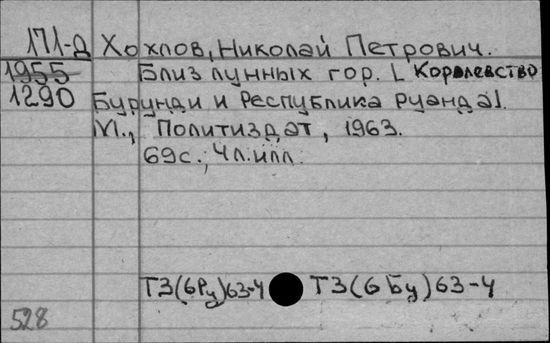 171-Д Хохлов, Николай Петрович.
1955 Близ лунных гор. [Королевство
1290 Бурунди и Республика Руанда].
М., Политиздат, 1963.
69с.; 4л.илл.
Т3(6Ру)63-4 Т3(6Бу)63-4
528